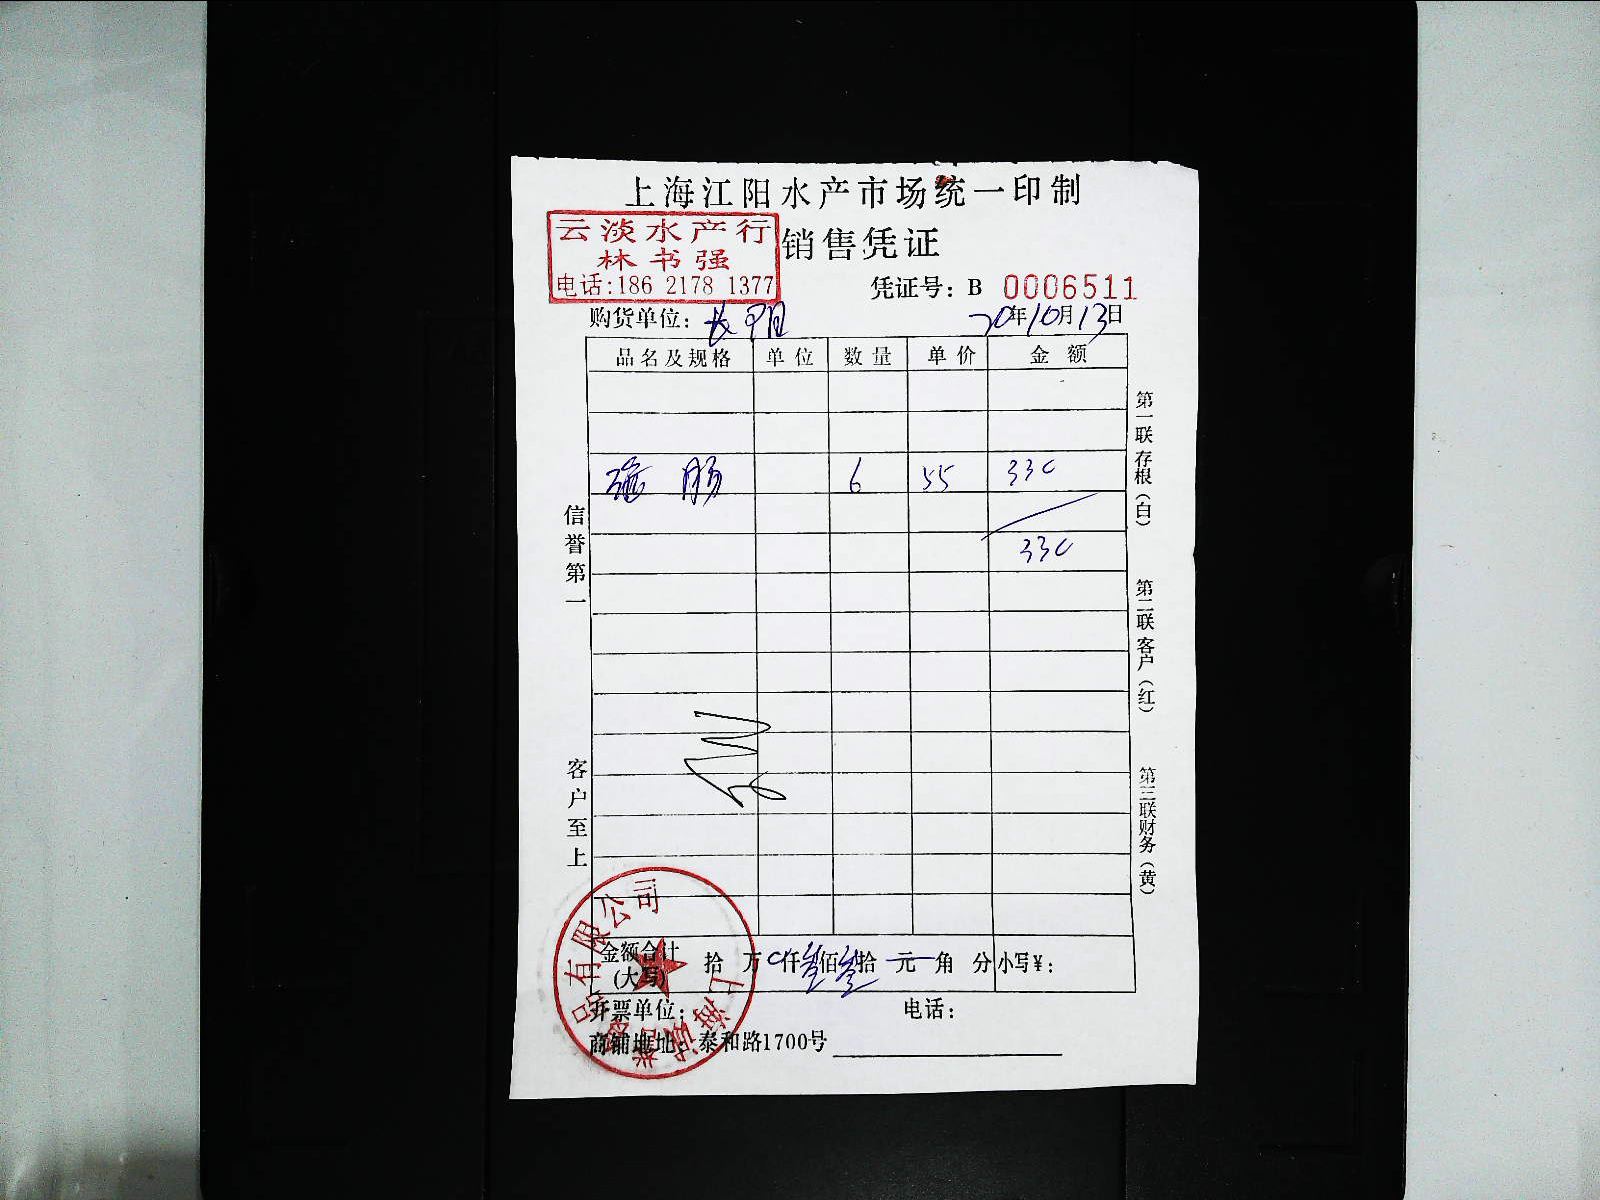 上海江阳水产市场统一印制
云淡水产行
林书强
电话:186 2178 1377
销售凭证
凭证号: B 0006511
购货单位: 长
20年10月13日
品名及规格 单位 数量 单价 金额
6 55 330
330
信誉第一
客户至上
第一联存根(白)
第二联客户(红)
第三联财务(黄)
金额合计(大写) 拾 万 0仟叁佰叁拾 元 角 分 小写¥:
开票单位: 电话:
商铺地址: 泰和路1700号
上海 品有限公司